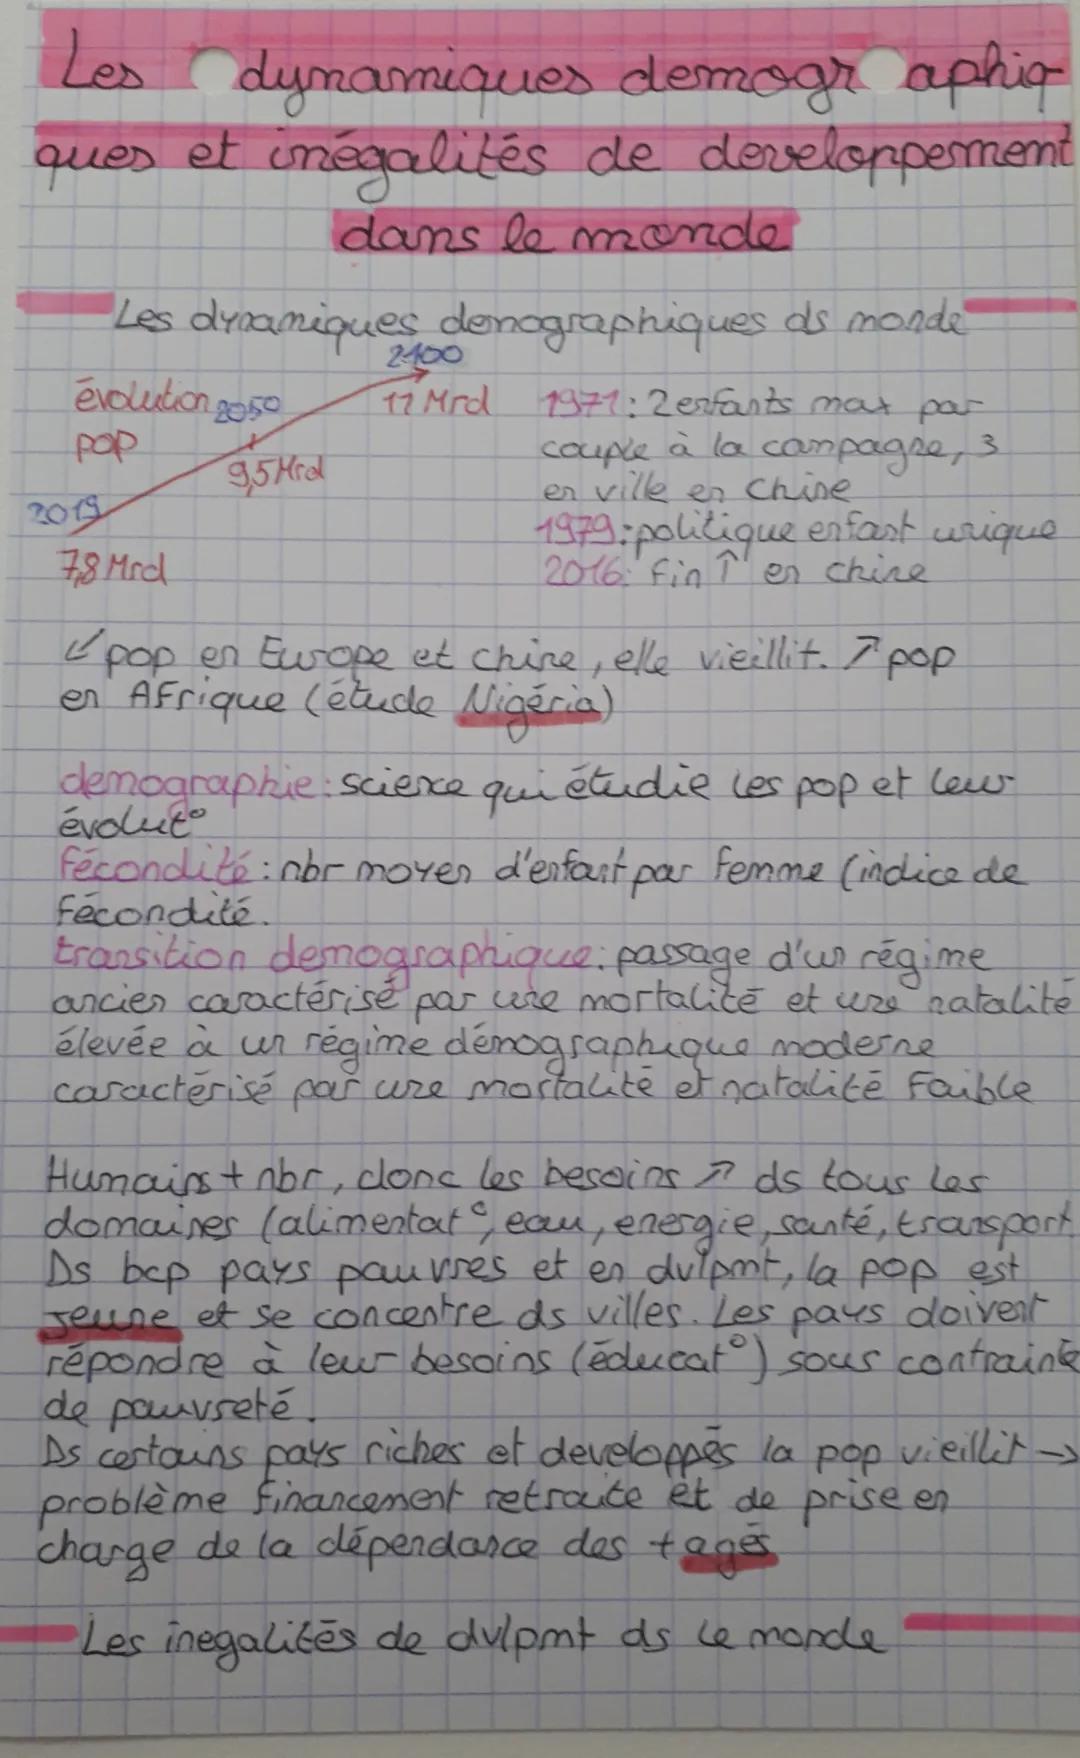 Les dynamiques demographiq-
ques et inégalités de developpement
dans le monde
Les dynamiques demographiques ds monde
2100
évolution 2050
pop
11 Mrd
9,5 Mrd
2019
7,8 Mrd
1971: 2 enfants max par
couple à la campagne, 3
en ville en Chine
1979: politique enfant unique
2016: fin ↑ en chine
↙ pop en Europe et chine, elle vieillit. ↗ pop
en Afrique (étude Nigéria)
demographie: science qui étudie les pop et leur
évolut°
fécondité: nbr moyen d'enfant par femme (indice de
fécondité.
transition demographique: passage d'un régime
ancien caractérisé par une mortalité et une natalité
élevée à un régime démographique moderne
caractérisé par une mortalité et natalité faible
Humains + nbr, donc les besoins ↗ ds tous les
domaines (alimentat°, eau, energie, santé, transport
Ds bcp pays pauvres et en dvlpmt, la pop est
jeune et se concentre ds villes. Les pays doivent
répondre à leur besoins (éducat°) sous contrainte
de pauvreté.
Ds certains pays riches et developpés la pop vieillit →
problème financement retraite et de prise en
charge de la dépendance des + agés
Les inegalités de dvlpmt ds le monde